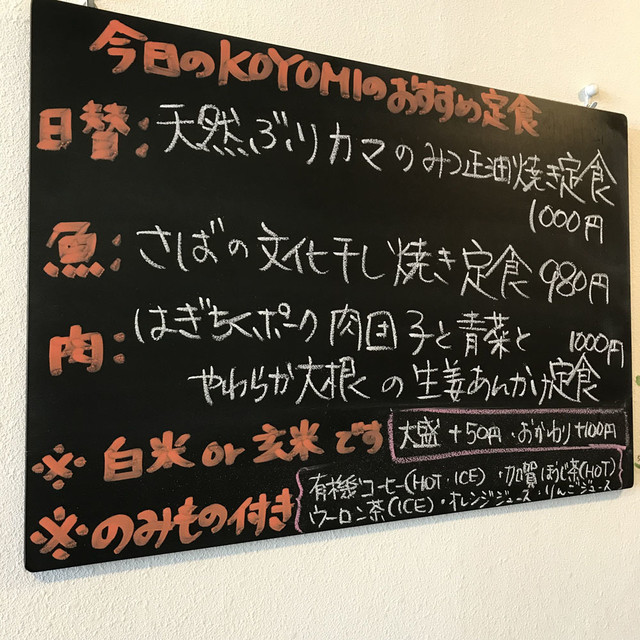 今日のKOYOMIのおすすめ定食
日替:天然ぶりカマのみつ正油焼き定食
1000円
魚:さばの文化干し焼き定食 980円
肉:はぎちくポーク肉団子と青菜と 1000円
やわらか大根の生姜あんかけ定食
※白米or玄米です 大盛+50円・おかわり+100円
※のみもの付き 有機コーヒー(HOT・ICE)・加賀ほうじ茶(HOT)
ウーロン茶(ICE)・オレンジジュース・りんごジュース